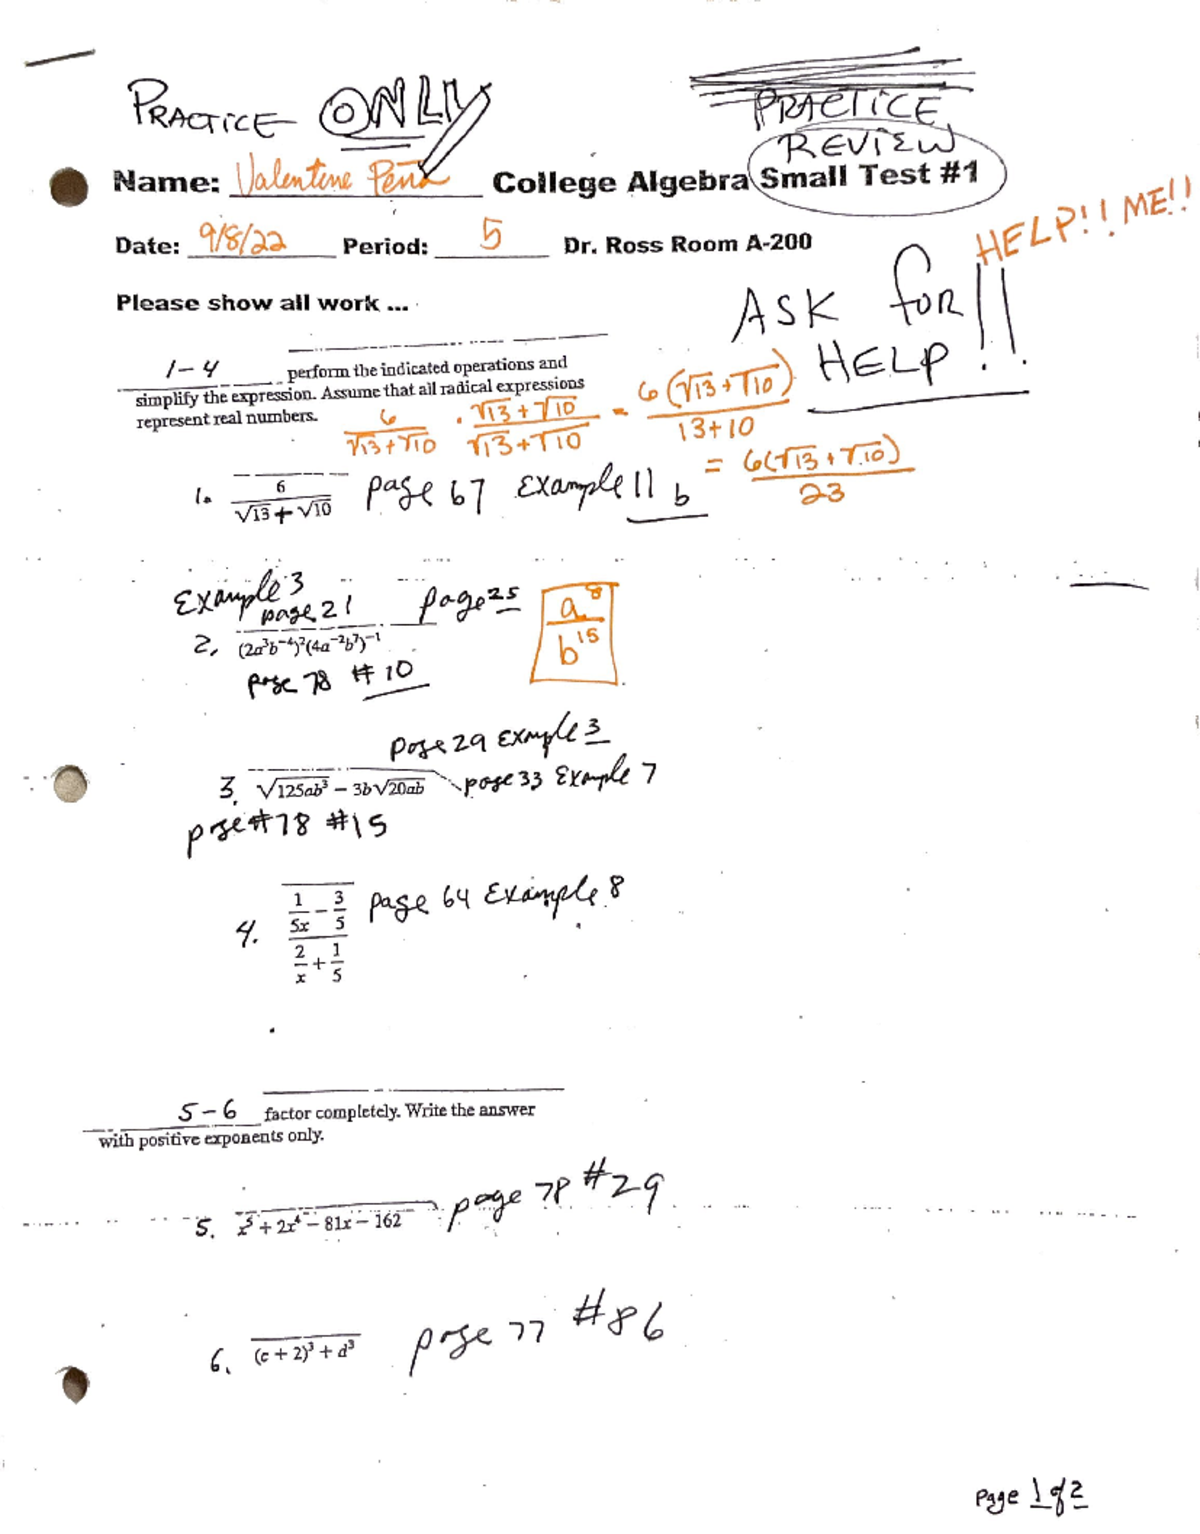 PRACTICE ONLY
PRACTICE
REVIEW
Name: Valentine Peña College Algebra Small Test #1
Date: 9/8/22 Period: 5 Dr. Ross Room A-200
HELP!! ME!!
Please show all work ...
ASK for
HELP!!
1-4 perform the indicated operations and
simplify the expression. Assume that all radical expressions
represent real numbers.
6/(√13+√10) · (√13+√10)/(√13+√10) = 6(√13+√10)/(13+10)
= 6(√13+√10)/23
1. 6/(√13+√10) page 67 Example 11 b
Example 3
page 21 page 25
a⁸/b¹⁵
2. (2a³b⁻⁴)²(4a⁻²b⁷)⁻¹
page 78 #10
page 29 Example 3
3. √125ab³ − 3b√20ab page 33 Example 7
page #78 #15
4. (1/5x − 3/5)/(2/x + 1/5) page 64 Example 8
5-6 factor completely. Write the answer
with positive exponents only.
5. x⁵ + 2x⁴ − 81x − 162 page 78 #29
6. (c + 2)³ + d³ page 77 #86
Page 1 of 2